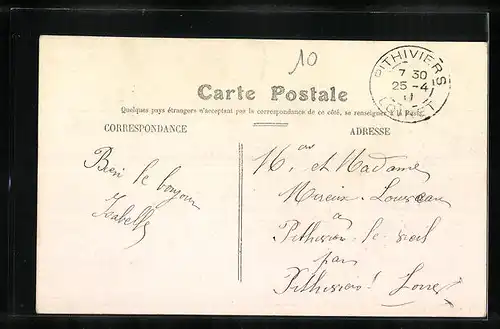 10
Carte Postale
Quelques pays étrangers n'acceptant pas la correspondance de ce côté, se renseigner à la Poste.
CORRESPONDANCE
ADRESSE
PITHIVIERS
7 30
25 -4
11
LOIRET
Bien le bonjour
Isabelle
et Madame
à
Pithiviers le vieil
par
Pithiviers Loiret